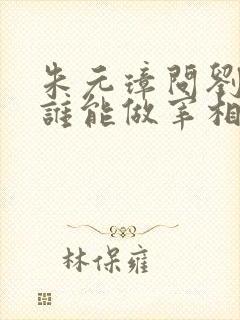 朱元璋問劉
誰能做宰相
林保雍